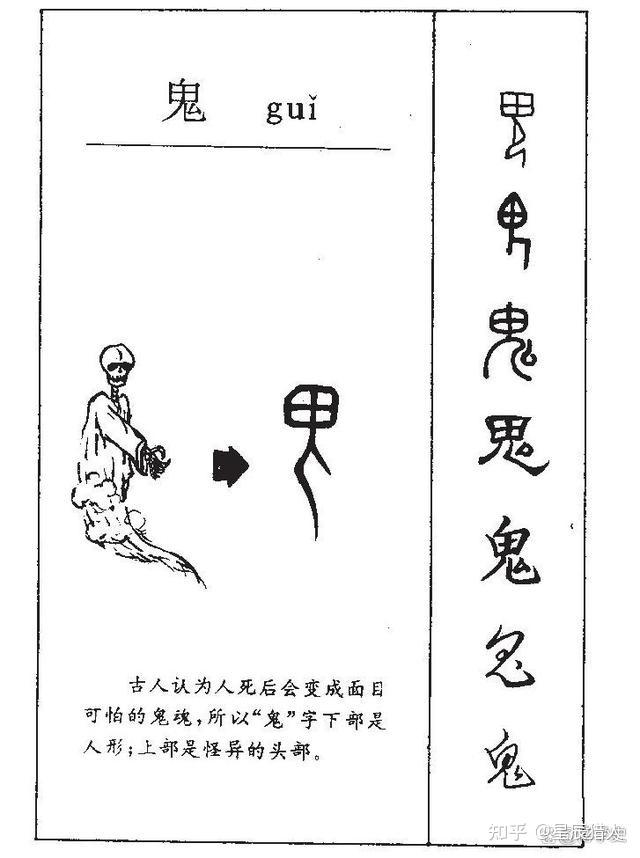 鬼 guǐ
古人认为人死后会变成面目
可怕的鬼魂，所以“鬼”字下部是
人形；上部是怪异的头部。
鬼
鬼
鬼
鬼
鬼
知乎 @星辰